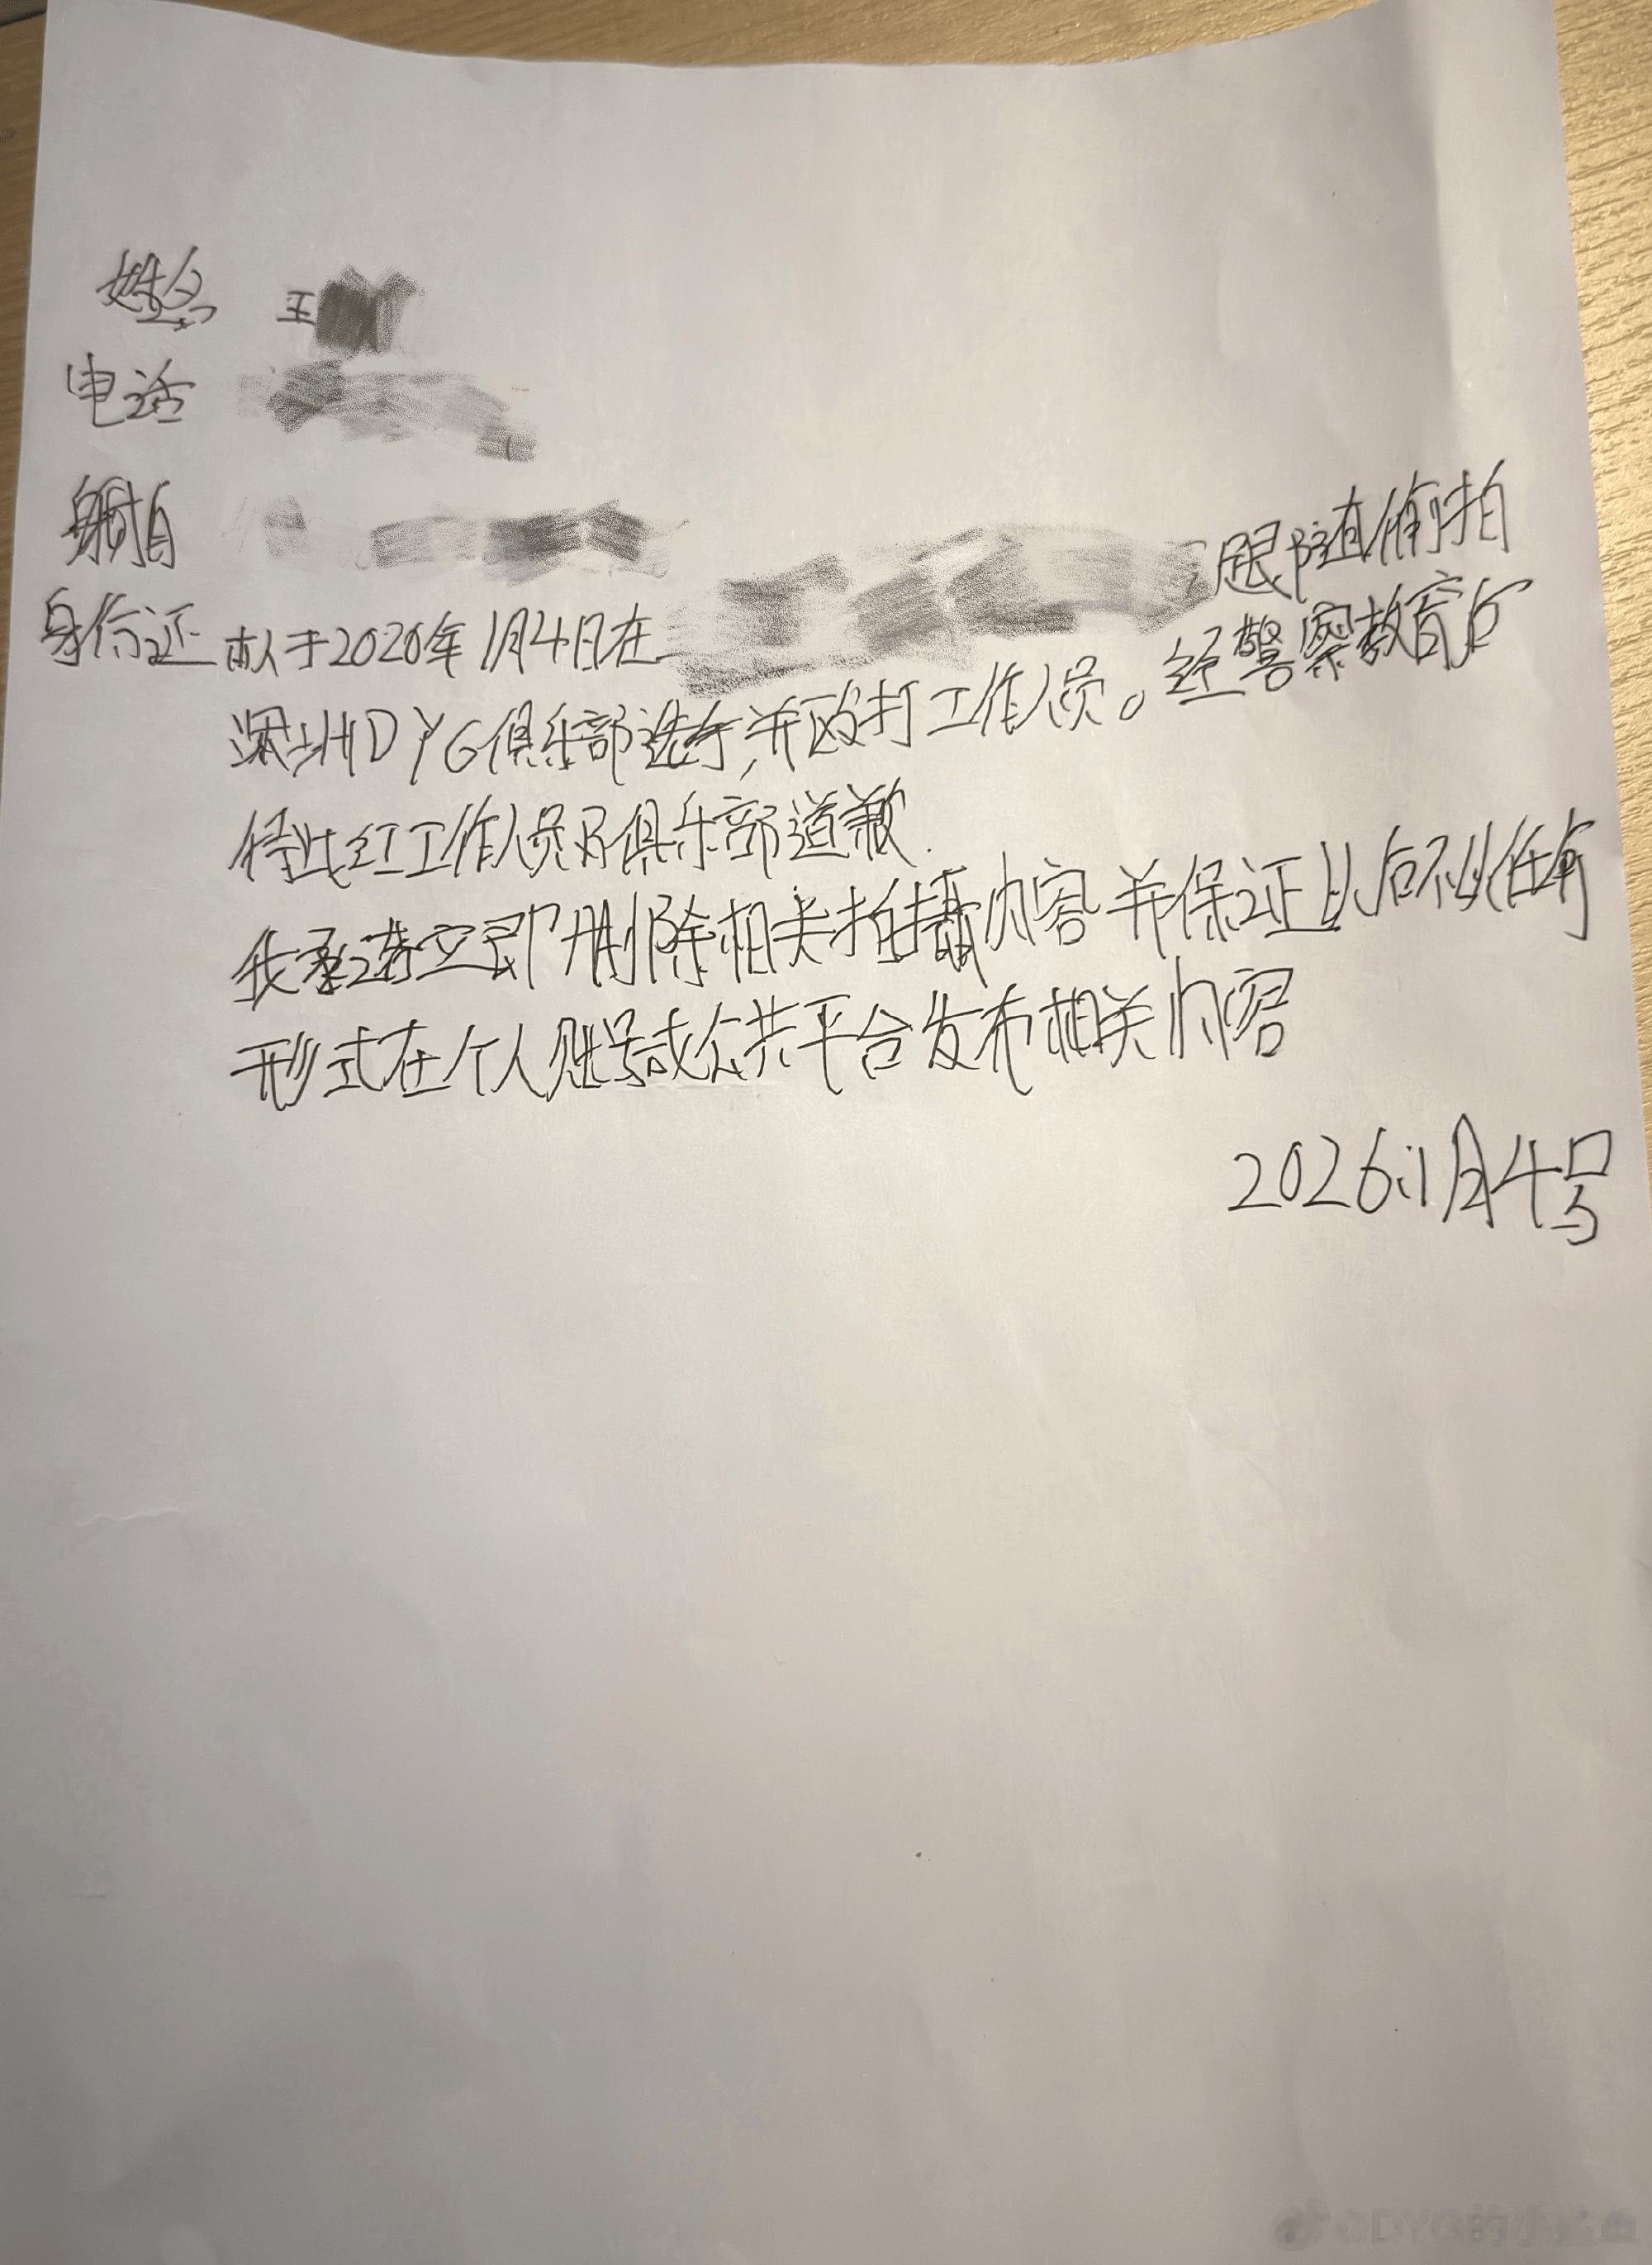 姓名 王
电话
身份证
本人于2020年1月4日在 跟随偷拍
深圳DYG俱乐部选手,并殴打工作员。经警察教育后
特此红工作人员及俱乐部道歉.
我承诺立即删除相关拍摄内容并保证以后不以任何
形式在个人账号或公共平台发布相关内容
2026.1月4号